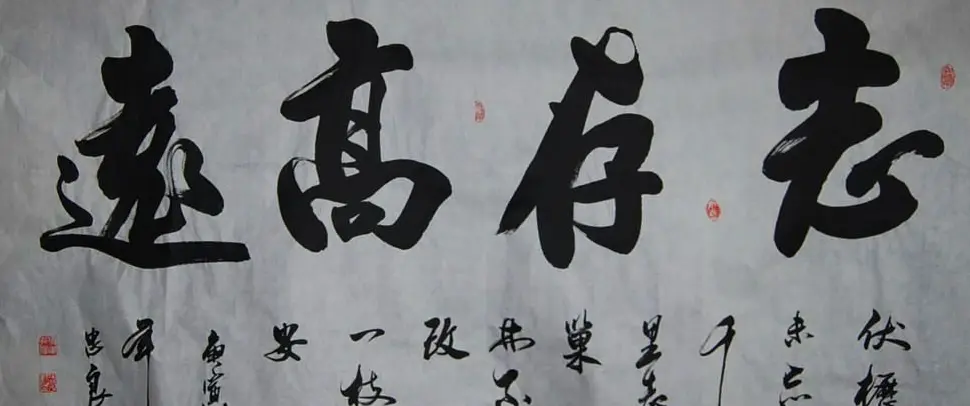 志存高遠
伏櫪
未忘
千
里
巢
林不
改
一枝
安
庚寅
年
忠良